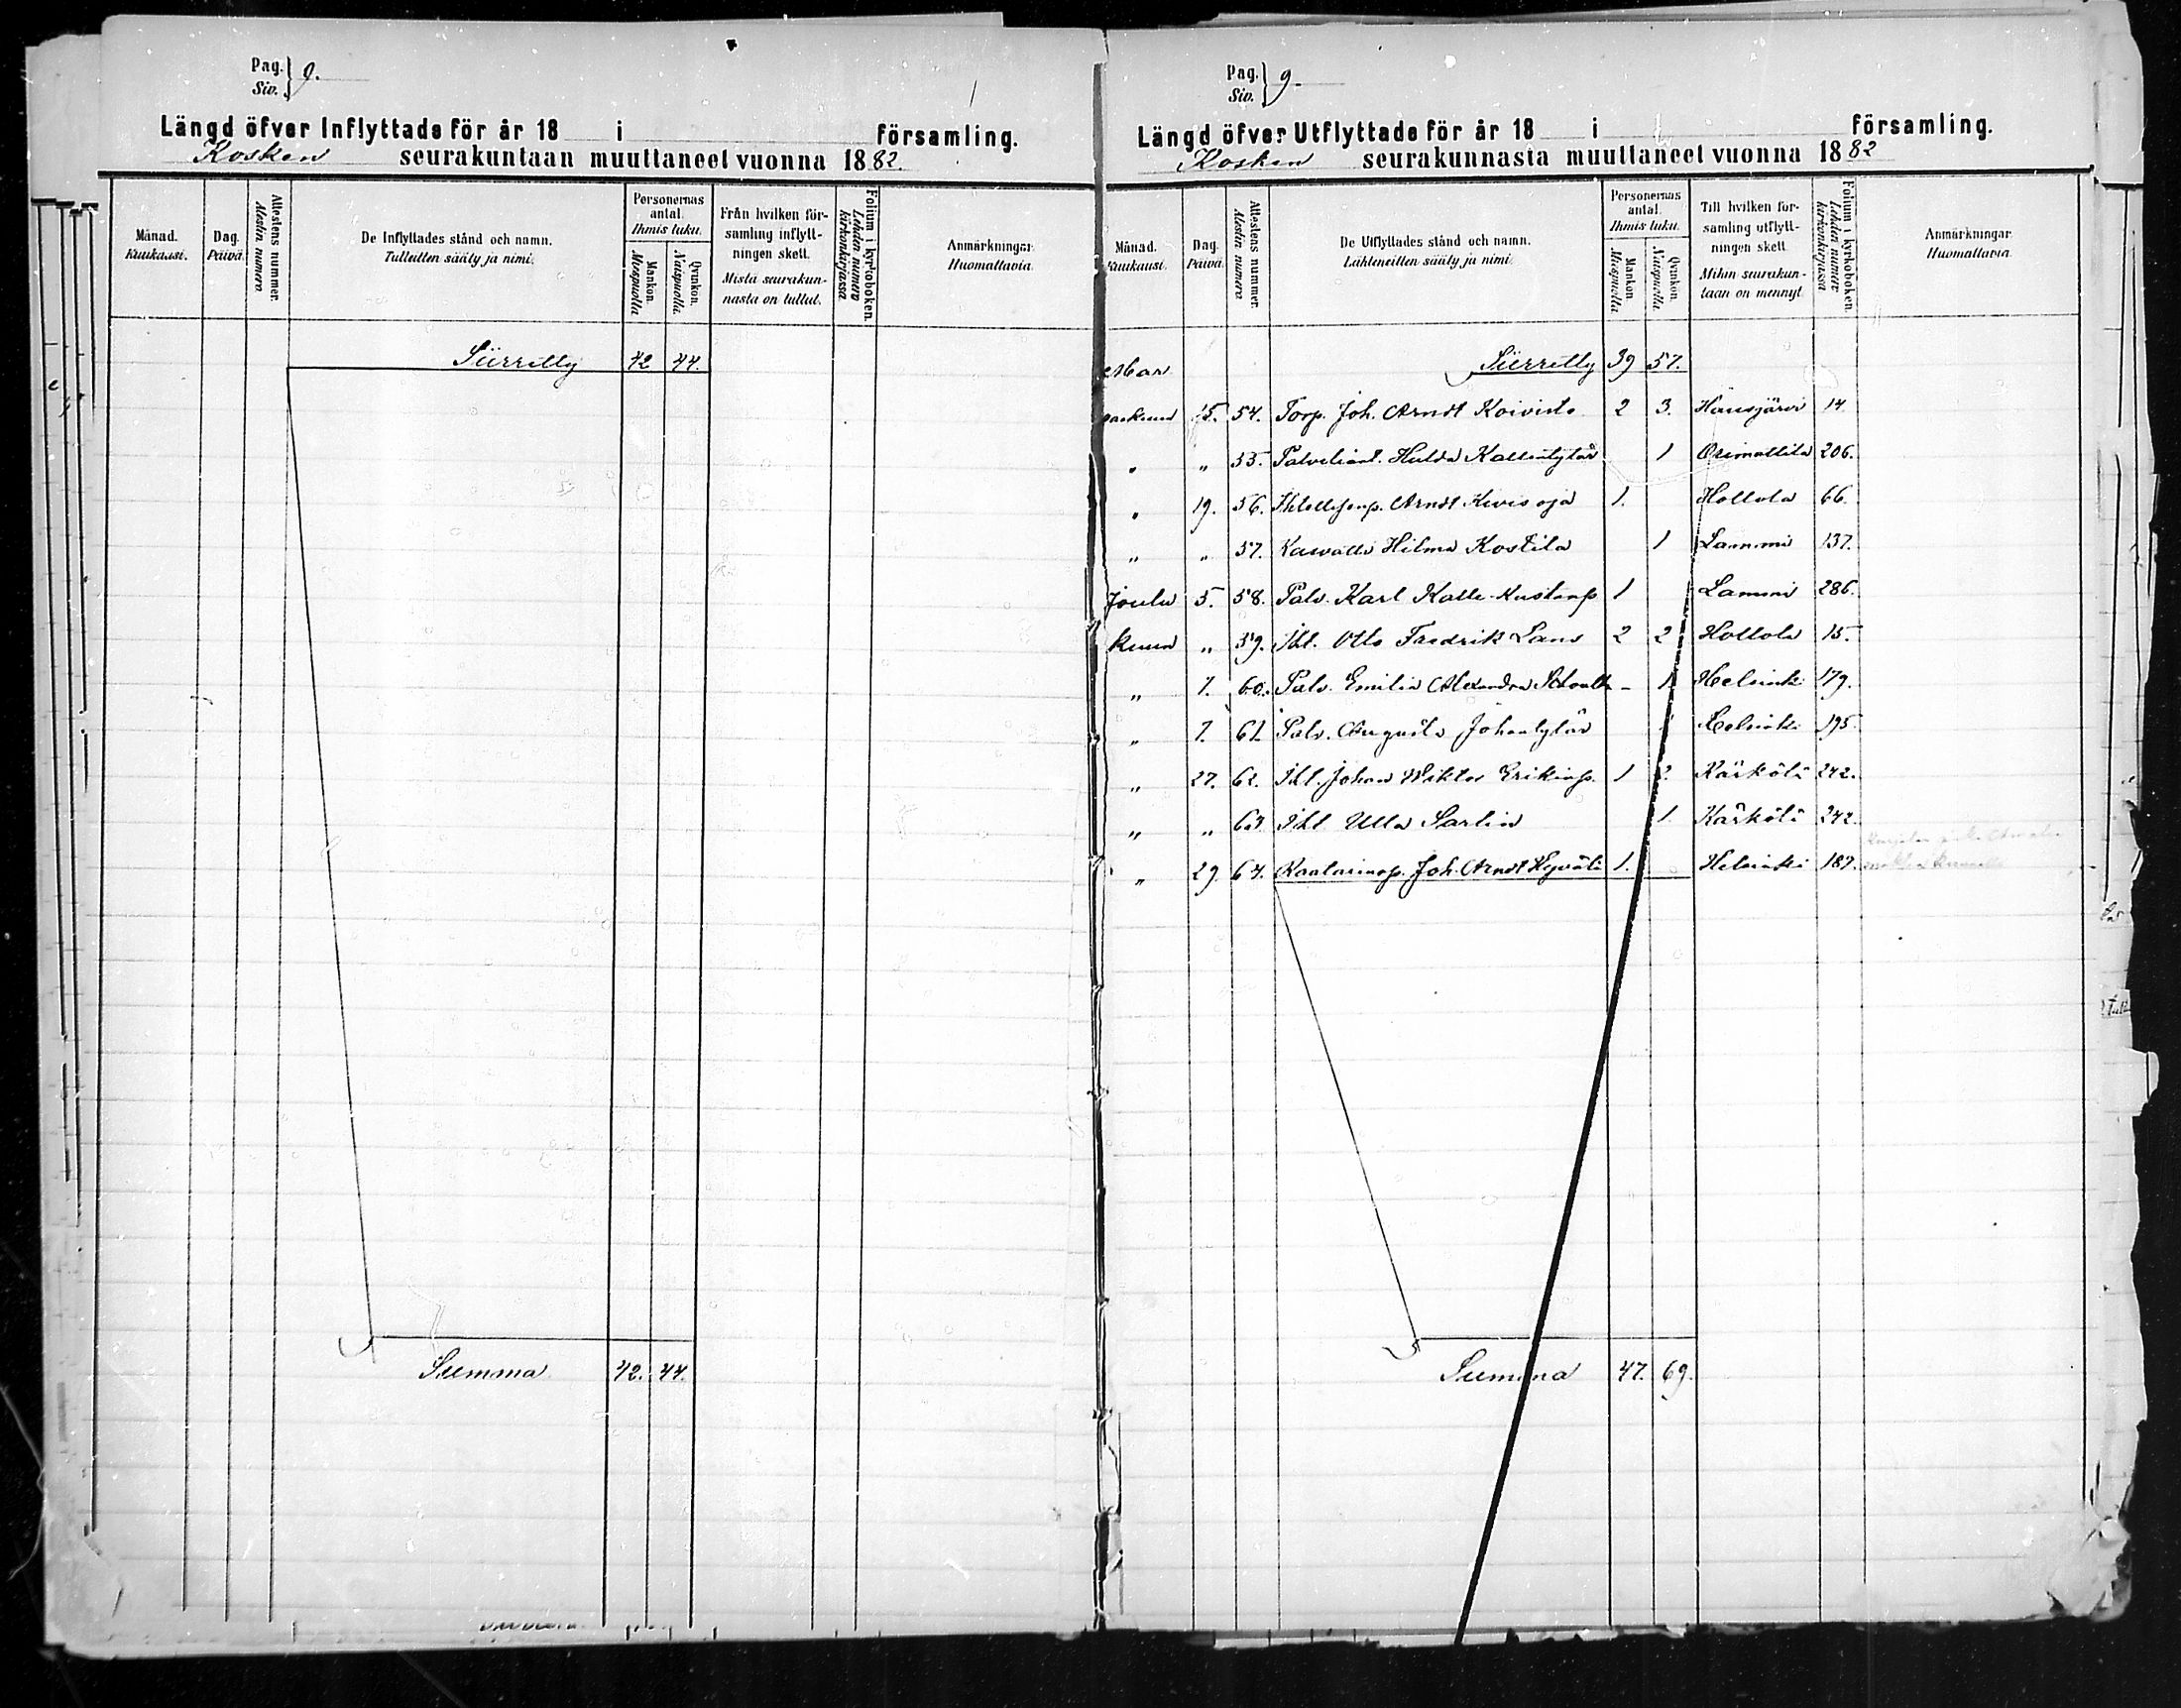 Pag. Siv. } 9.
Längd öfver Inflyttade för år 18 i församling.
Kosken seurakuntaan muuttaneet vuonna 1882.
Månad. Kuukausi.
Dag. Päivä.
Attestens nummer. Atestin numero.
De Inflyttades stånd och namn. Tulleitten sääty ja nimi.
Personernas antal. Ihmis luku.
Mankön. Miespuolia
Qvinkön. Naispuolia.
Från hvilken församling inflyttningen skett. Mistä seurakunnasta on tullut.
Folium i kyrkoboken. Lehden numero kirkonkirjassa
Anmärkningar. Huomattavia.
Siirretty 42 44.
Summa 42. 44.
Pag. Siv. } 9.
Längd öfver Utflyttade för år 18 i församling.
Kosken seurakunnasta muuttaneet vuonna 1882
Månad. Kuukausi.
Dag. Päivä.
Attestens nummer. Atestin numero
De Utflyttades stånd och namn. Lähteneitten sääty ja nimi.
Personernas antal. Ihmis luku.
Mankön. Miespuolia
Qvinkön. Naispuolia.
Till hvilken församling utflyttningen skett. Mihin seurakuntaan on mennyt.
Folium i kyrkoboken. Lehden numero kirkonkirjassa
Anmärkningar. Huomattavia.
Mar Siirretty 39 57.
raskuun 15. 54. Torp. Joh. Arndt Koivisto 2 3. Hausjärvi 14
„ „ 55. Hulda Kallentytär 1 Orimattila 206.
„ 19. 56. Arndt Kivisoja 1. Hollola 66.
„ „ 57. Kasvatti Hilma Kostila 1 Lammi 137.
Joulu 5. 58. Palv. Karl Kalle Kustanp 1 Lammi 286.
kuun „ 59. Ihl. Otto Fredrik Lans 2 2 Hollola 15.
„ 7. 60. Palv. Emilia Alexandra - 1 Helsinki 179.
„ 7. 61. Palv. Augusta Johantytär Helsinki 195.
„ 27. 62. Ihl. Johan Wiktor Erikinp. 1 2. Kärkölä 242.
„ „ 63. Ihl Ulla Sarlin 1. Kärkölä 242.
„ 29. 64. Joh. Arndt Hyväti 1. Helsinki 187.
Summa 47. 69.